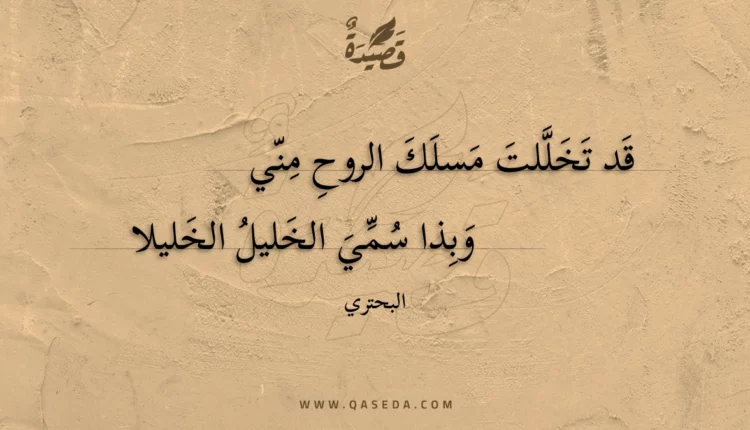 قَصِيدَةٌ
قَد تَخَلَّلتَ مَسلَكَ الروحِ مِنّي
وَبِذا سُمِّيَ الخَليلُ الخَليلا
البحتري
WWW.QASEDA.COM